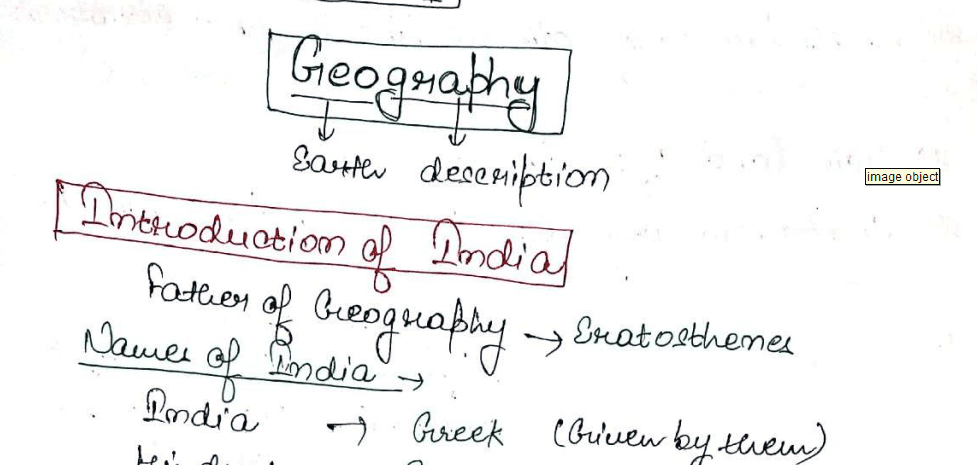 Geography
Earth description
image object
Introduction of India
Father of Geography → Eratosthenes
Names of India →
India → Greek (Given by them)